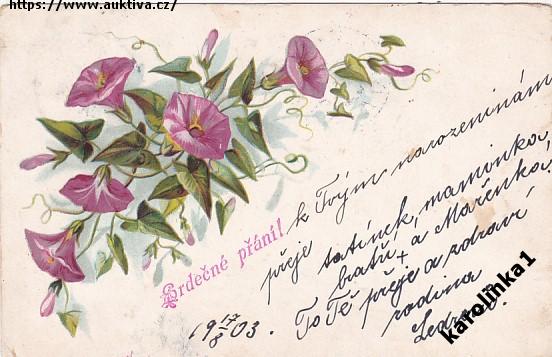 https://www.auktiva.cz/
Srdečné přání!
k Tvým narozeninám
přeje tatínek, maminka,
bratři + a Mařenka!
To Tě přeje a zdraví
rodina
19 17/8 03.
karolinka1